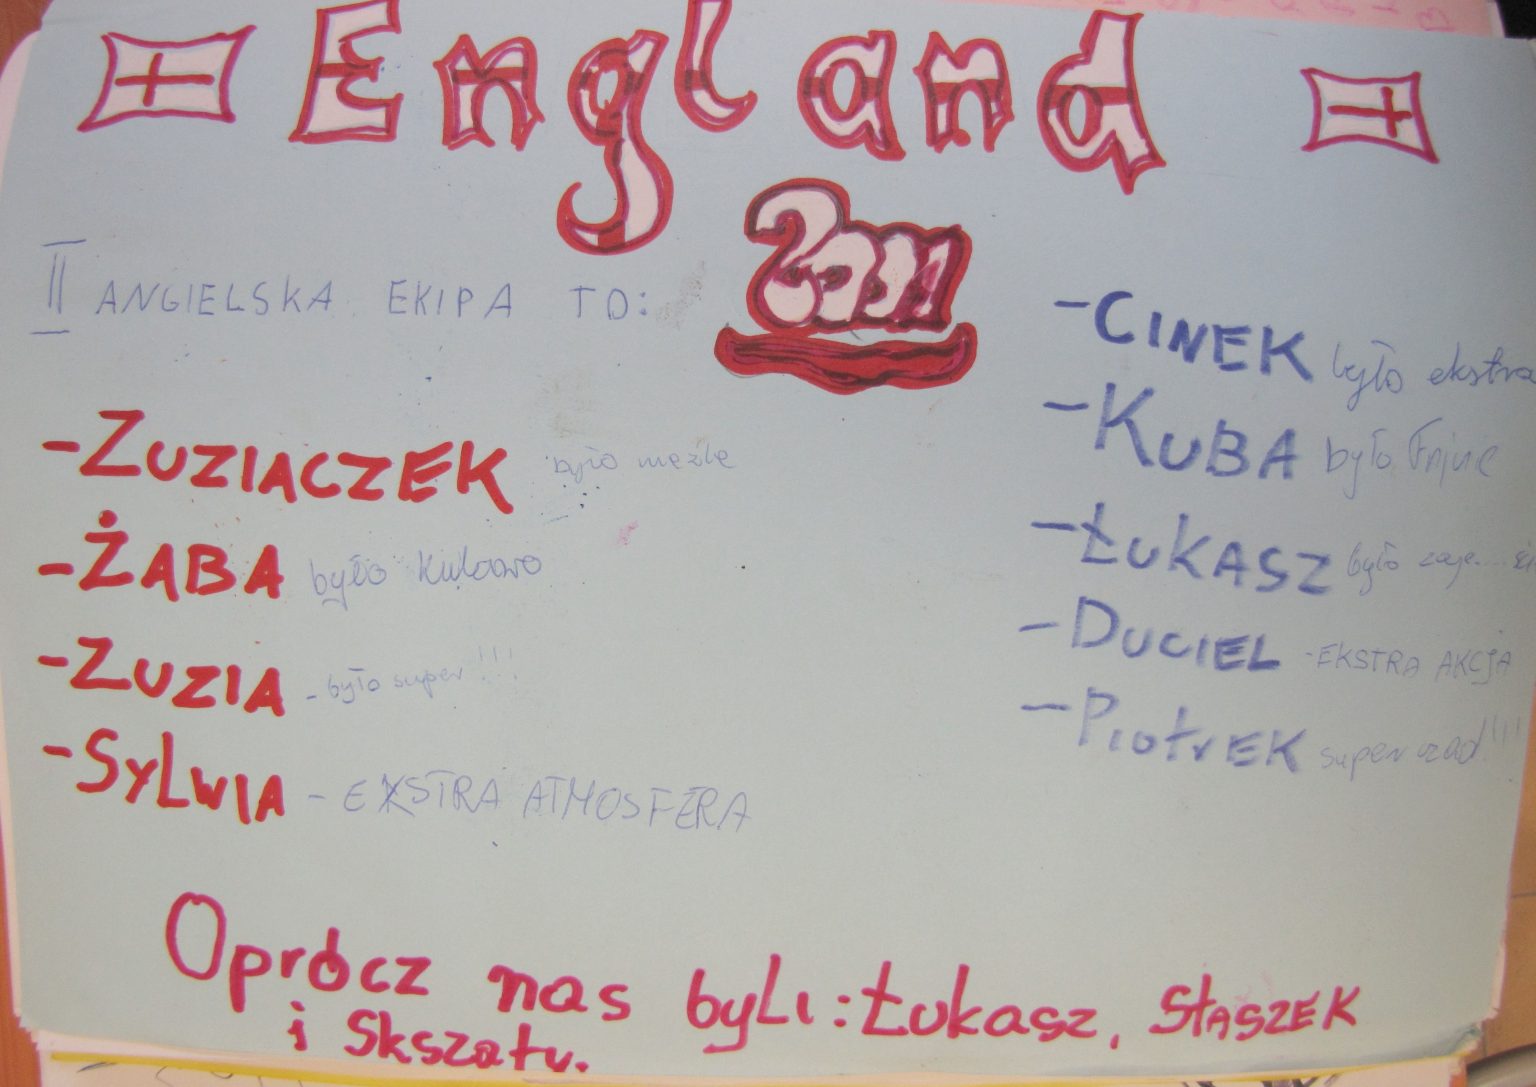 England
2001
II ANGIELSKA EKIPA TO:
- ZUZIACZEK było nieźle
- ŻABA było kulowo
- ZUZIA - było super !!!
- SYLWIA - EKSTRA ATMOSFERA
- CINEK było ekstra
- KUBA było fajne
- ŁUKASZ było zaje...
- DUCIEL - EKSTRA AKCJA
- PiotrEK super !!!!
Oprócz nas byLi: Łukasz, StASZEK
i Skszatu.